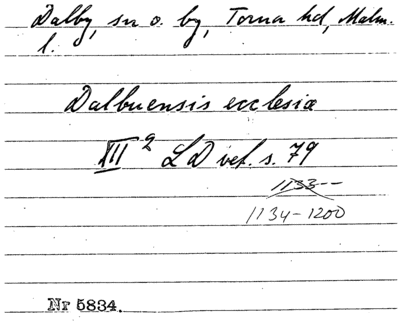 Dalby, sn o. by, Torna hd, Malm.
l.
Dalbuensis ecclesiæ
XII 2 LD vet. s. 79
1133--
1134-1200
Nr 5834.